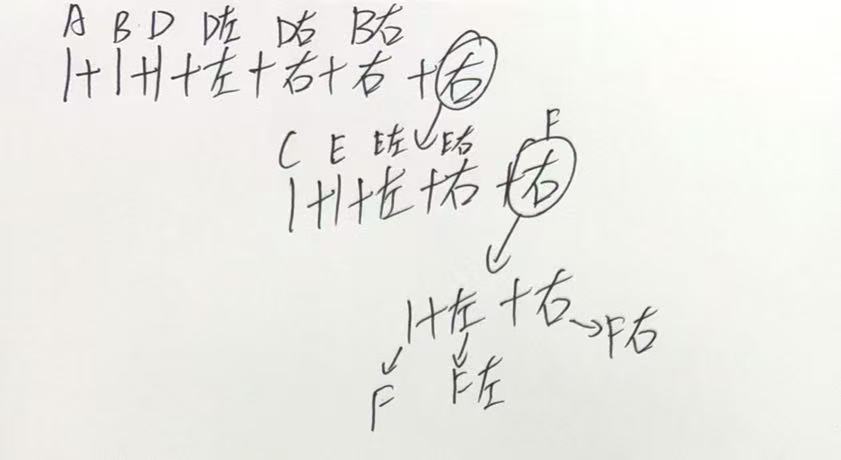 A B D D左 D右 B右
1+1+1+左+右+右+右
C E E左 E右 F
1+1+左+右+右
1+左+右→F右
F F左